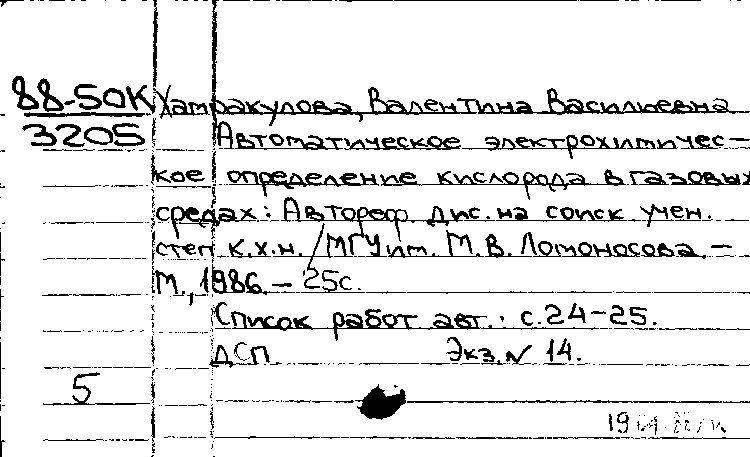 88-50К Хамракулова, Валентина Васильевна
3205 Автоматическое электрохимичес-
кое определение кислорода в газовых
средах: Автореф. дис. на соиск. учен.
степ к.х.н. /МГУ им. М.В. Ломоносова. –
М., 1986. – 25с.
Список работ авт.: с. 24-25.
ДСП. Экз. № 14.
5
19